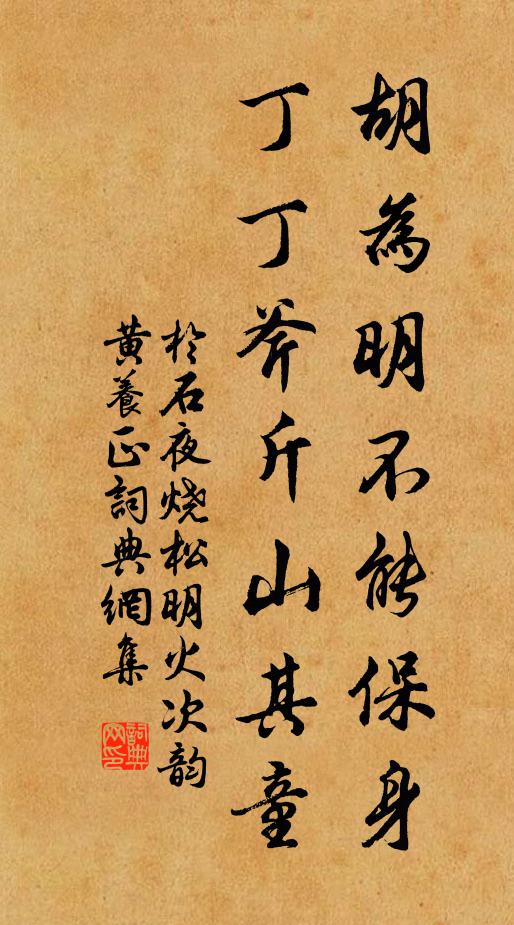 胡為明不能保身
丁丁斧斤山其童
於石夜燒松明火次韵
黃養正詞典網集
詞典網印